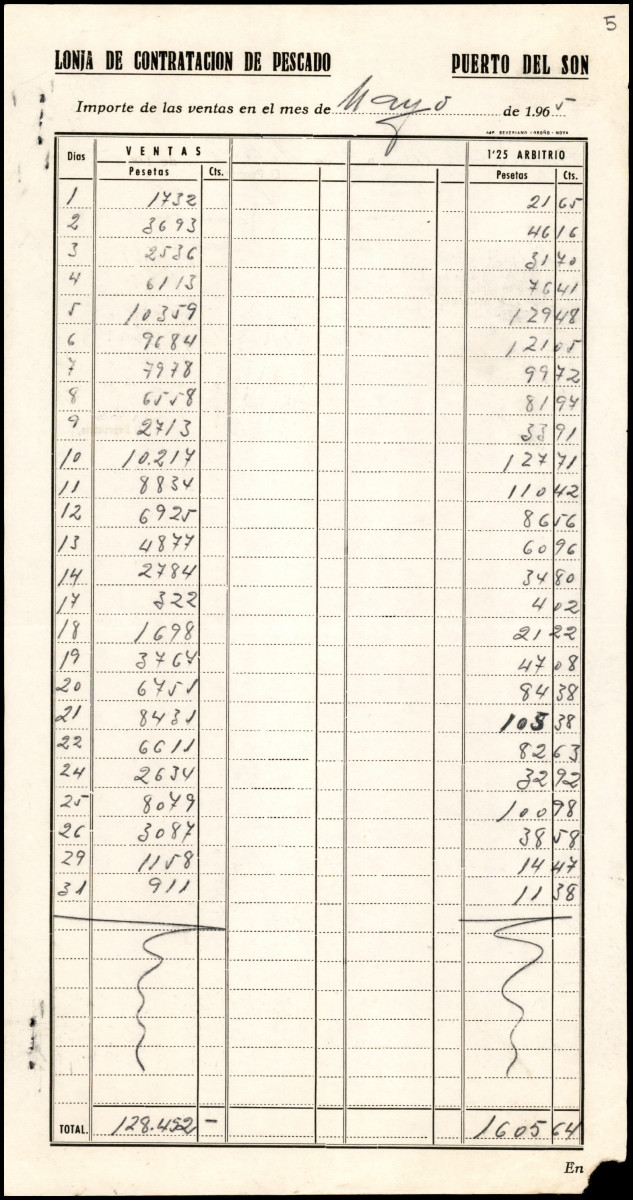 5
LONJA DE CONTRATACION DE PESCADO PUERTO DEL SON
Importe de las ventas en el mes de Mayo de 1.965
Días VENTAS 1'25 ARBITRIO
Pesetas Cts. Pesetas Cts.
1 1732 21 65
2 3693 46 16
3 2536 31 70
4 6113 76 41
5 10359 129 48
6 9684 121 05
7 7978 99 72
8 6558 81 97
9 2713 33 91
10 10.217 127 71
11 8834 110 42
12 6925 86 56
13 4877 60 96
14 2784 34 80
17 322 4 02
18 1698 21 22
19 3767 47 08
20 6751 84 38
21 8431 105 38
22 6611 82 63
24 2634 32 92
25 8079 100 98
26 3087 38 58
29 1158 14 47
31 911 11 38
TOTAL. 128.452 - 1605 64
En